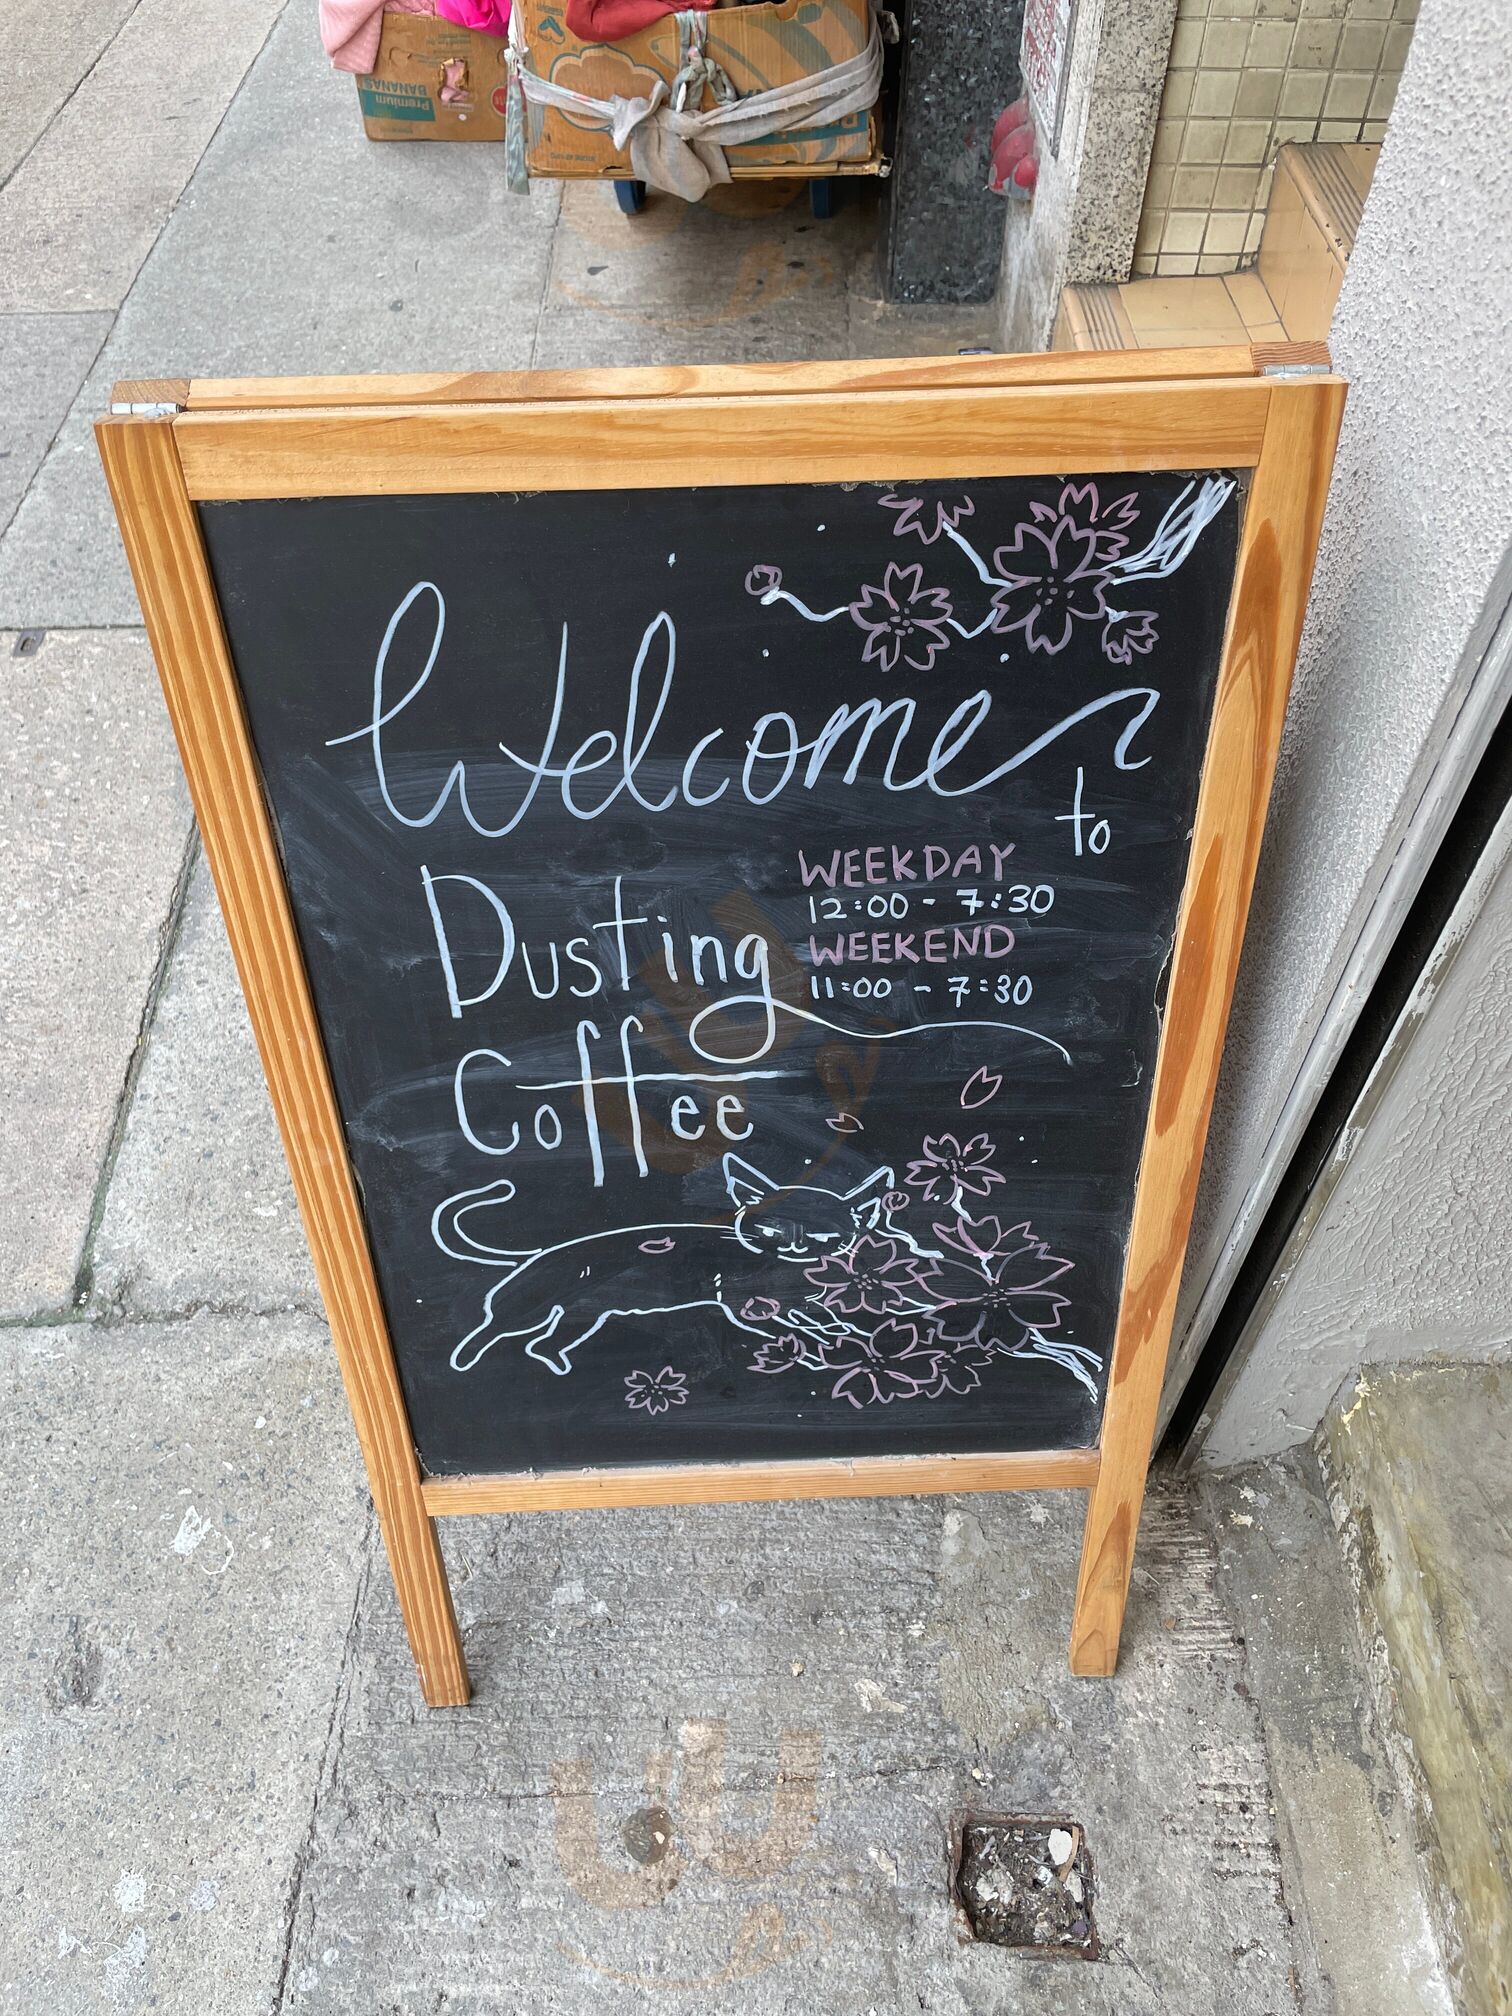 Premium
BANANAS
Welcome
to
Dusting
Coffee
WEEKDAY
12:00 - 7:30
WEEKEND
11:00 - 7:30